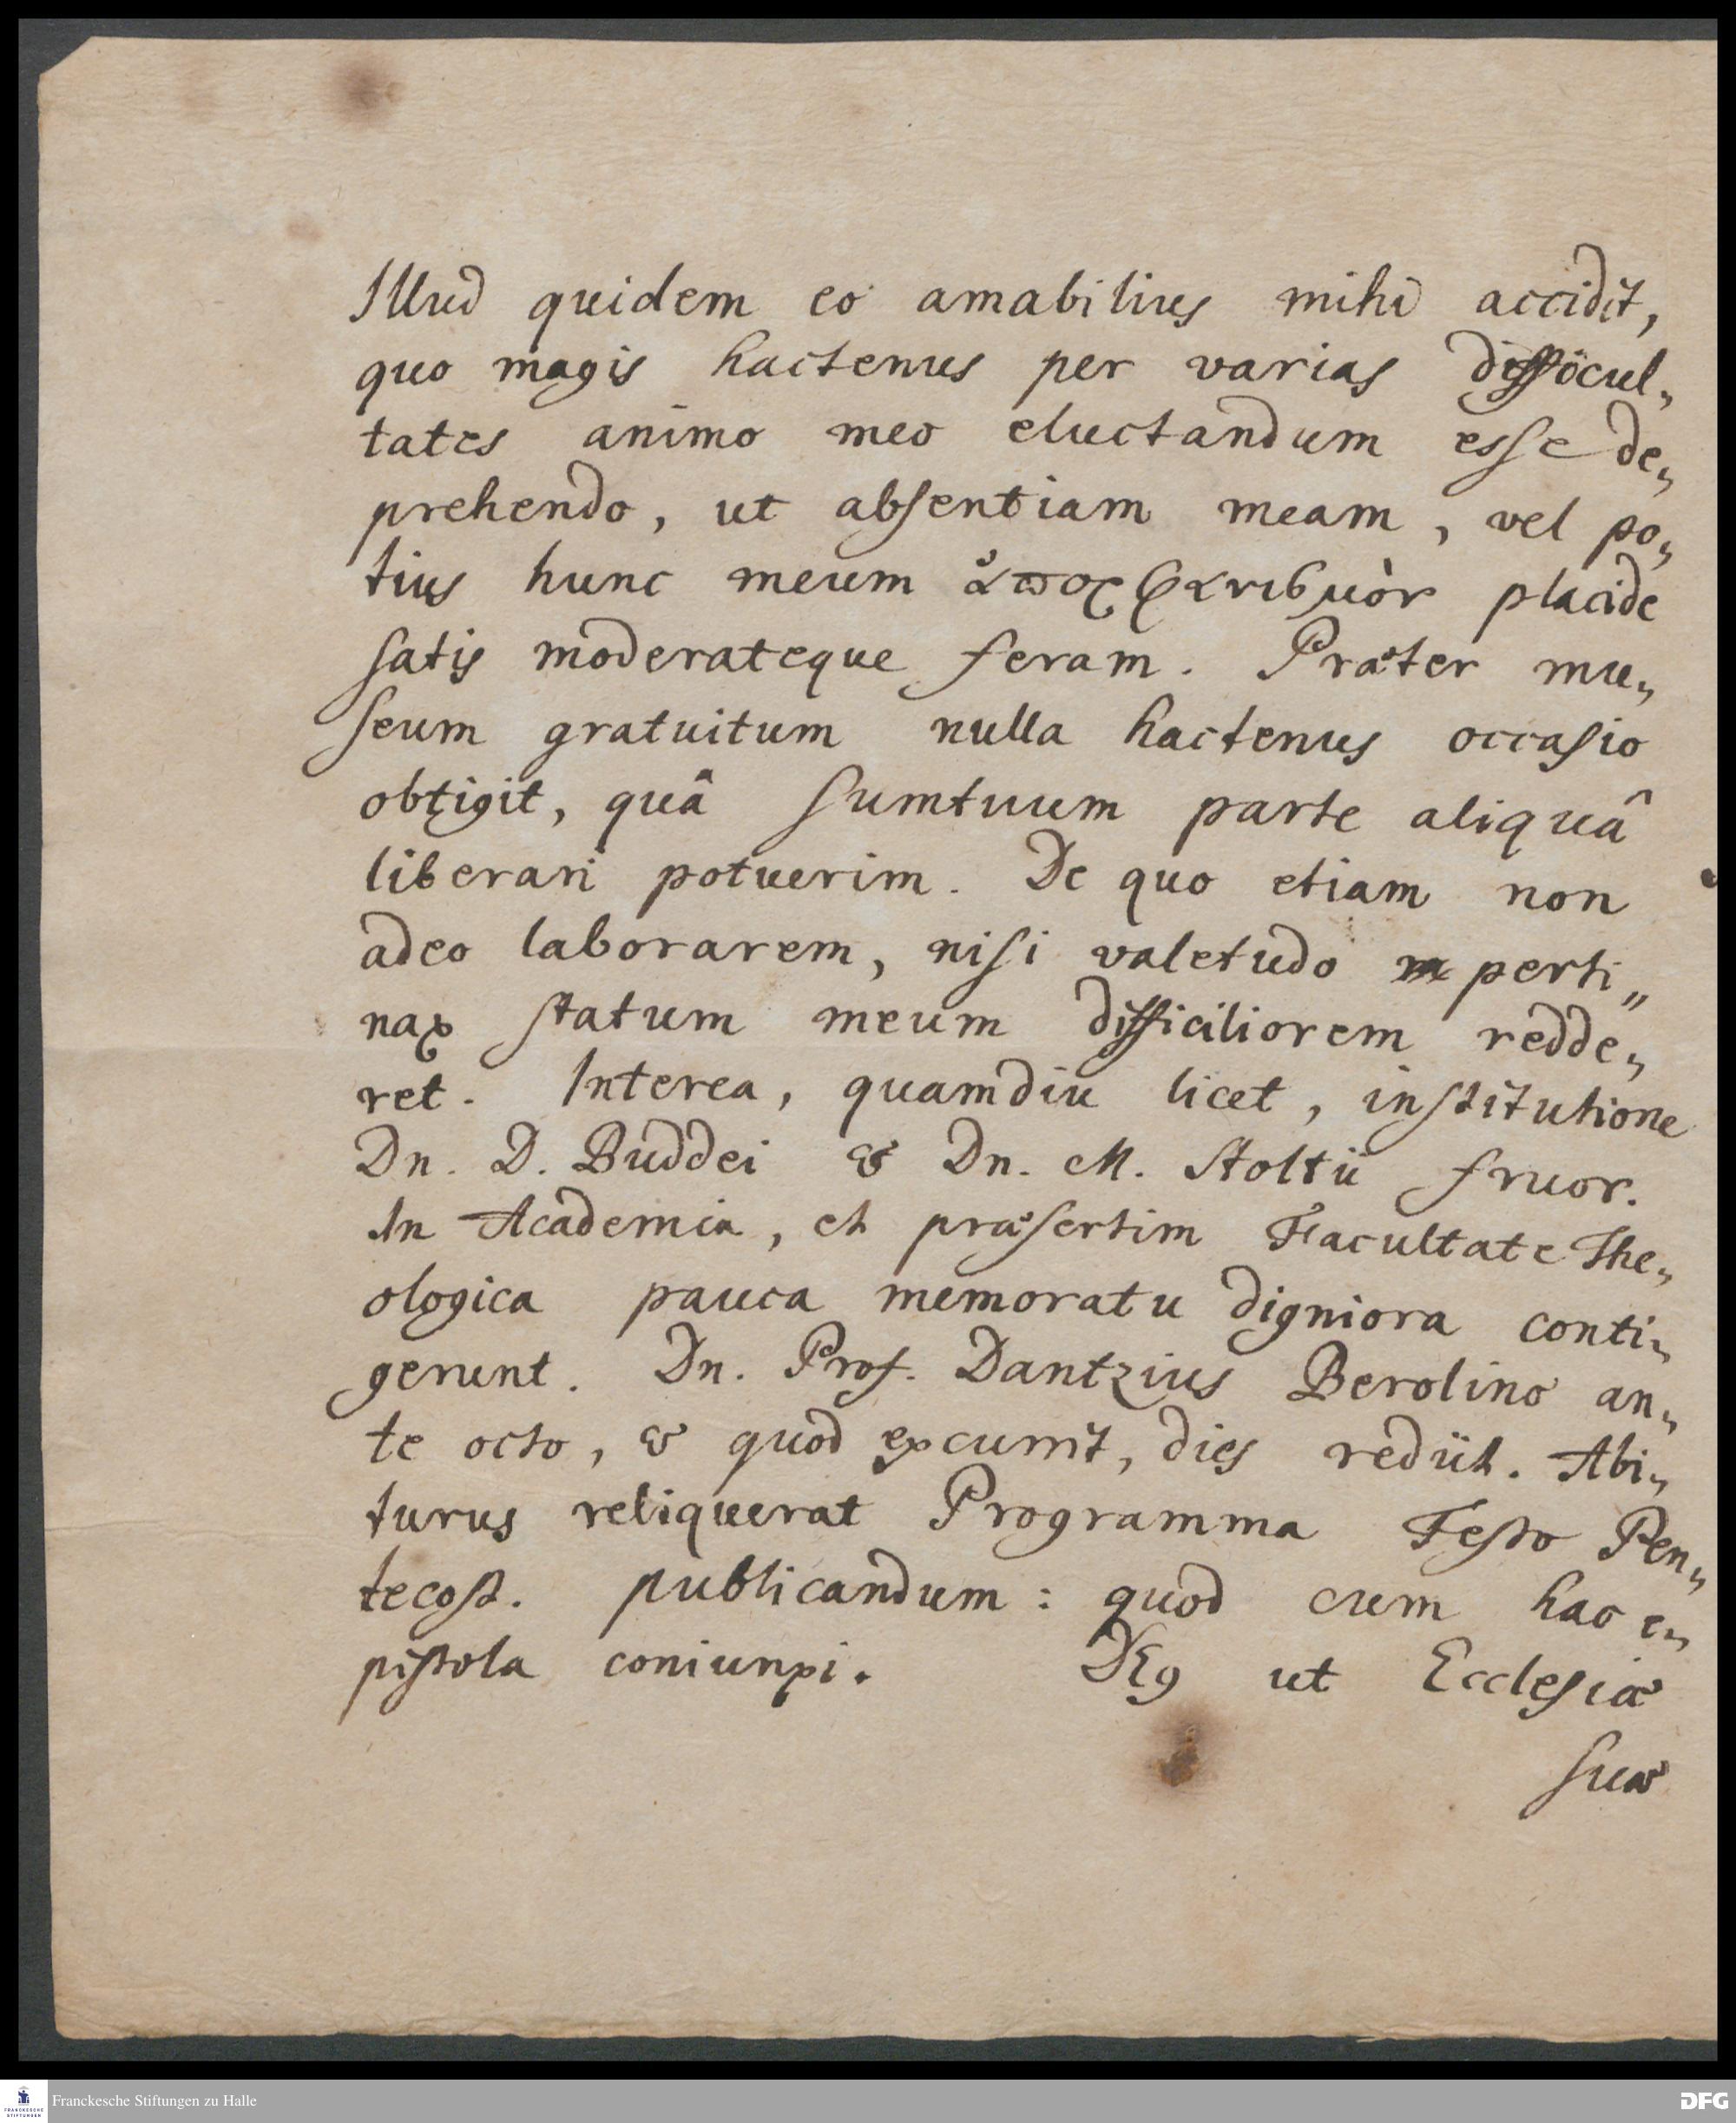 Illud quidem eo amabilius mihi accidit,
quo magis hactenus per varias difficul„
tates animo meo eluctandum esse de„
prehendo, ut absentiam meam, vel po„
tius hunc meum placide
satis moderateque feram. Præter mu„
seum gratuitum nulla hactenus occasio
obtigit, quâ sumtuum parte aliquâ
liberari potuerim. De quo etiam non
adeo laborarem, nisi valetudo perti„
nax statum meum difficiliorem redde„
ret. Interea, quamdiu licet, institutione
Dn. D. Buddei & Dn. M. Stoltii fruor.
In Academia, et præsertim Facultate The„
ologica pauca memoratu digniora conti„
gerunt. Dn. Prof. Dantzius Berolino an„
te octo, & quod excurrit, dies rediit. Abi„
turus reliquerat Programma Festo Pen„
tecost. publicandum: quod cum hac e„
pistola coniunxi. DEus ut Ecclesiæ
suæ
Franckesche Stiftungen zu Halle
FRANCKESCHE STIFTUNGEN
DFG